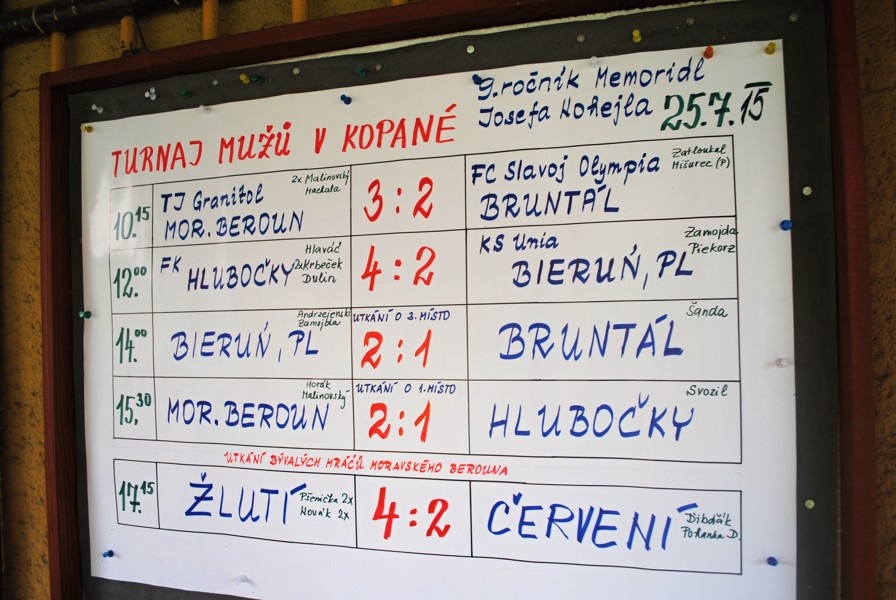 9.ročník Memoriál
Josefa Kohejla 25.7.15
TURNAJ MUŽŮ V KOPANÉ
10.15 TJ Granitol 2x Malinovský Machala
MOR. BEROUN
3:2
FC Slavoj Olympia Zatloukal Mišurec (P)
BRUNTÁL
12.00 FK HLUBOČKY Hlaváč 2xKrbeček Dulin
4:2
KS Unia Zamojda Piekorz
BIERUŃ, PL
14.00 BIERUŃ, PL Andrzejewski Zamojda
UTKÁNÍ O 3. MÍSTO
2:1
BRUNTÁL Šanda
15.30 MOR. BEROUN Horák Malinovský
UTKÁNÍ O 1. MÍSTO
2:1
HLUBOČKY Svozil
UTKÁNÍ BÝVALÝCH HRÁČŮ MORAVSKÉHO BEROUNA
17.15 ŽLUTÍ Pšenička 2x Novák 2x
4:2
ČERVENÍ Polanka D.